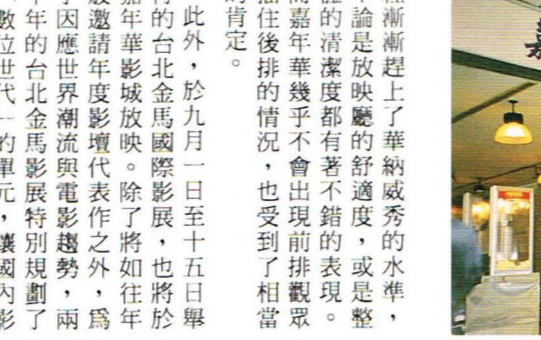 漸漸趕上了華納威秀的水準，
論是放映廳的舒適度，或是整
的清潔度都有著不錯的表現。
嘉年華幾乎不會出現前排觀眾
擋住後排的情況，也受到了相當
的肯定。
此外，於九月一日至十五日舉
行的台北金馬國際影展，也將於
嘉年華影城放映。除了將如往年
般邀請年度影壇代表作之外，爲
了因應世界潮流與電影趨勢，兩
年的台北金馬影展特別規劃了
數位世代」的單元，讓國內影
嘉